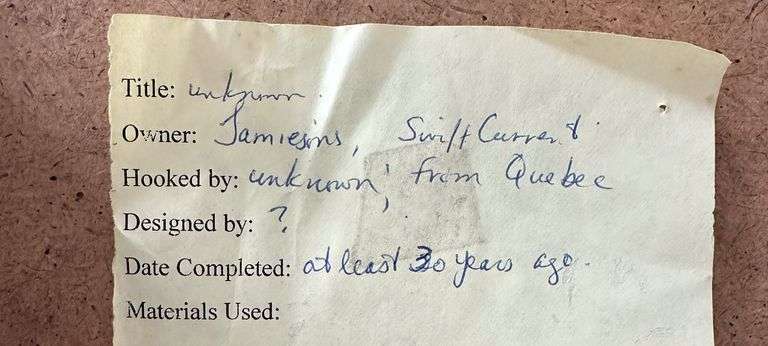 Title: unknown.
Owner: Jamiesons, Swift Current
Hooked by: unknown, from Quebec
Designed by: ?
Date Completed: at least 30 years ago.
Materials Used: